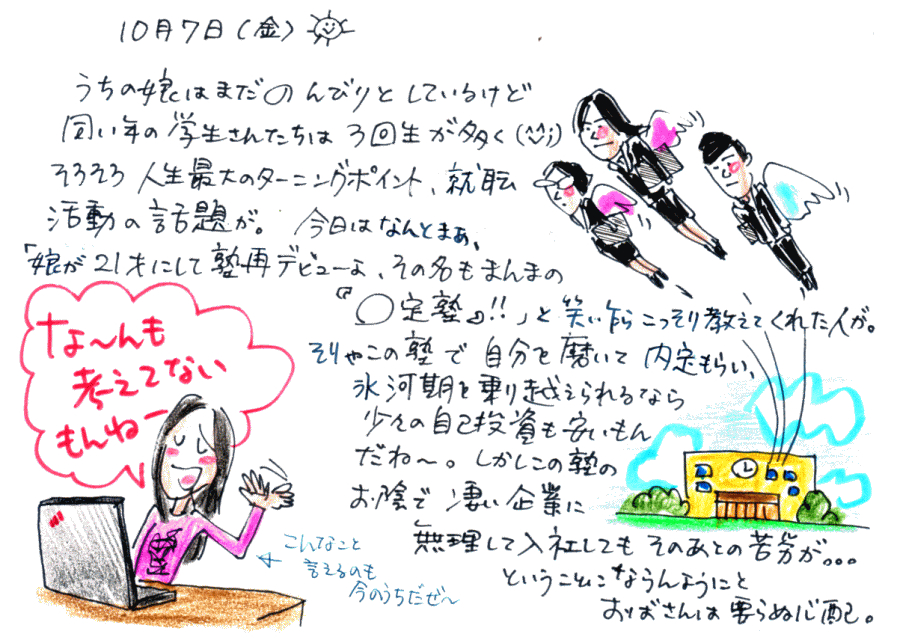 10月7日(金)
うちの娘はまだのんびりとしているけど
同い年の学生さんたちは3回生が多く(^^;)
そろそろ人生最大のターニングポイント、就転
活動の話題が。今日はなんとまぁ、
「娘が21才にして塾再デビューよ、その名もまんまの
『〇定塾』!!」と笑い乍らこっそり教えてくれた人が。
そりゃこの塾で自分を磨いて内定もらい、
氷河期を乗り越えられるなら
少々の自己投資も安いもん
だね〜。しかしこの塾の
お陰で凄い企業に
無理して入社してもそのあとの苦労が。。。
ということにならんようにと
おばさんは要らぬ心配。
な〜んも
考えてない
もんねー
こんなこと
言えるのも
今のうちだぜ〜